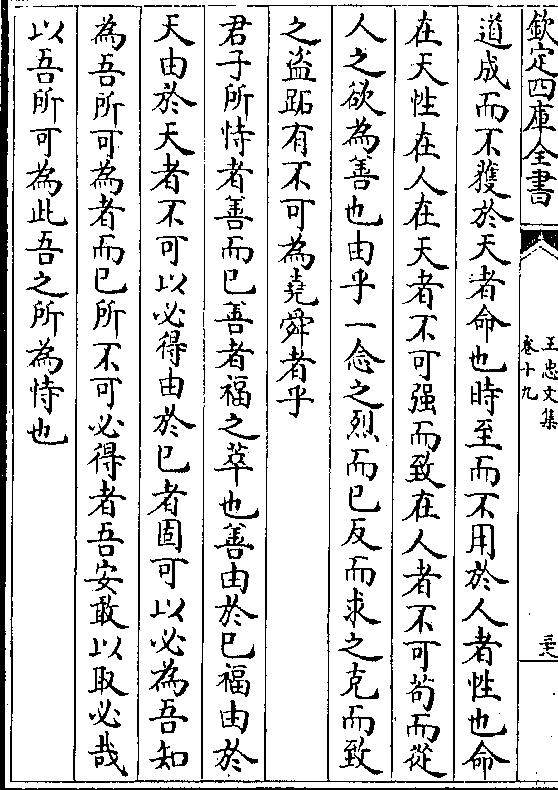 欽定四庫全書
王忠文集
卷十九
道成而不獲於天者命也時至而不用於人者性也命
在天性在人在天者不可强而致在人者不可苟而從
人之欲為善也由乎一念之烈而已反而求之克而致
之盜跖有不可為堯舜者乎
君子所恃者善而已善者福之萃也善由於已福由於
天由於天者不可以必得由於已者固可以必為吾知
為吾所可為者而已所不可必得者吾安敢以取必哉
以吾所可為此吾之所為恃也